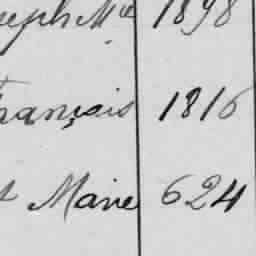 seph Mie 1898
rançois 1816
t Marie 624